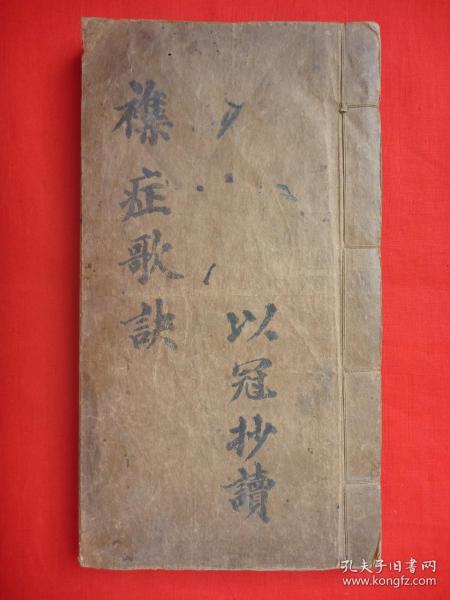 襍症歌訣
以冠抄讀
孔夫子旧书网
www.kongfz.com